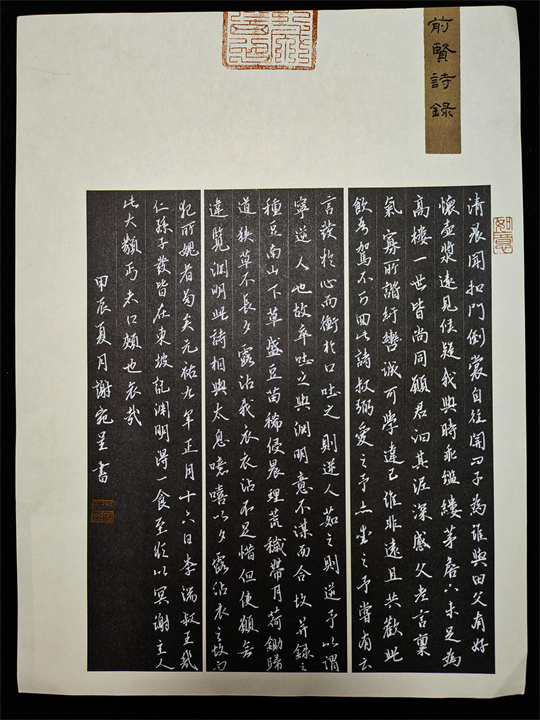 前賢詩錄
如意
清晨聞扣門倒裳自往開问子為誰與田父有好
懷壺漿遠見候疑我與時乖繿縷茅簷下未足為
高樓一世皆尚同願君汩其泥深感父老言稟
氣寡所諧紆轡誠可學違己詎非迷且共歡此
飲吾駕不可回此詩叔弼愛之予亦愛之予嘗有云
言發於心而衝於口吐之則逆人茹之則逆予以謂
寧逆人也故卒吐之與淵明意不謀而合故并錄之
種豆南山下草盛豆苗稀侵晨理荒穢帶月荷鋤歸
道狹草木長夕露沾我衣衣沾不足惜但使願無
違覽淵明此詩相與太息噫嘻以夕露沾衣之故而
犯所媿者多矣元祐九年正月十六日李端叔王幾
仁孫子發皆在東坡記淵明得一食至欲以冥謝主人
此大類丐者口頰也哀哉
甲辰夏月謝宛呈書